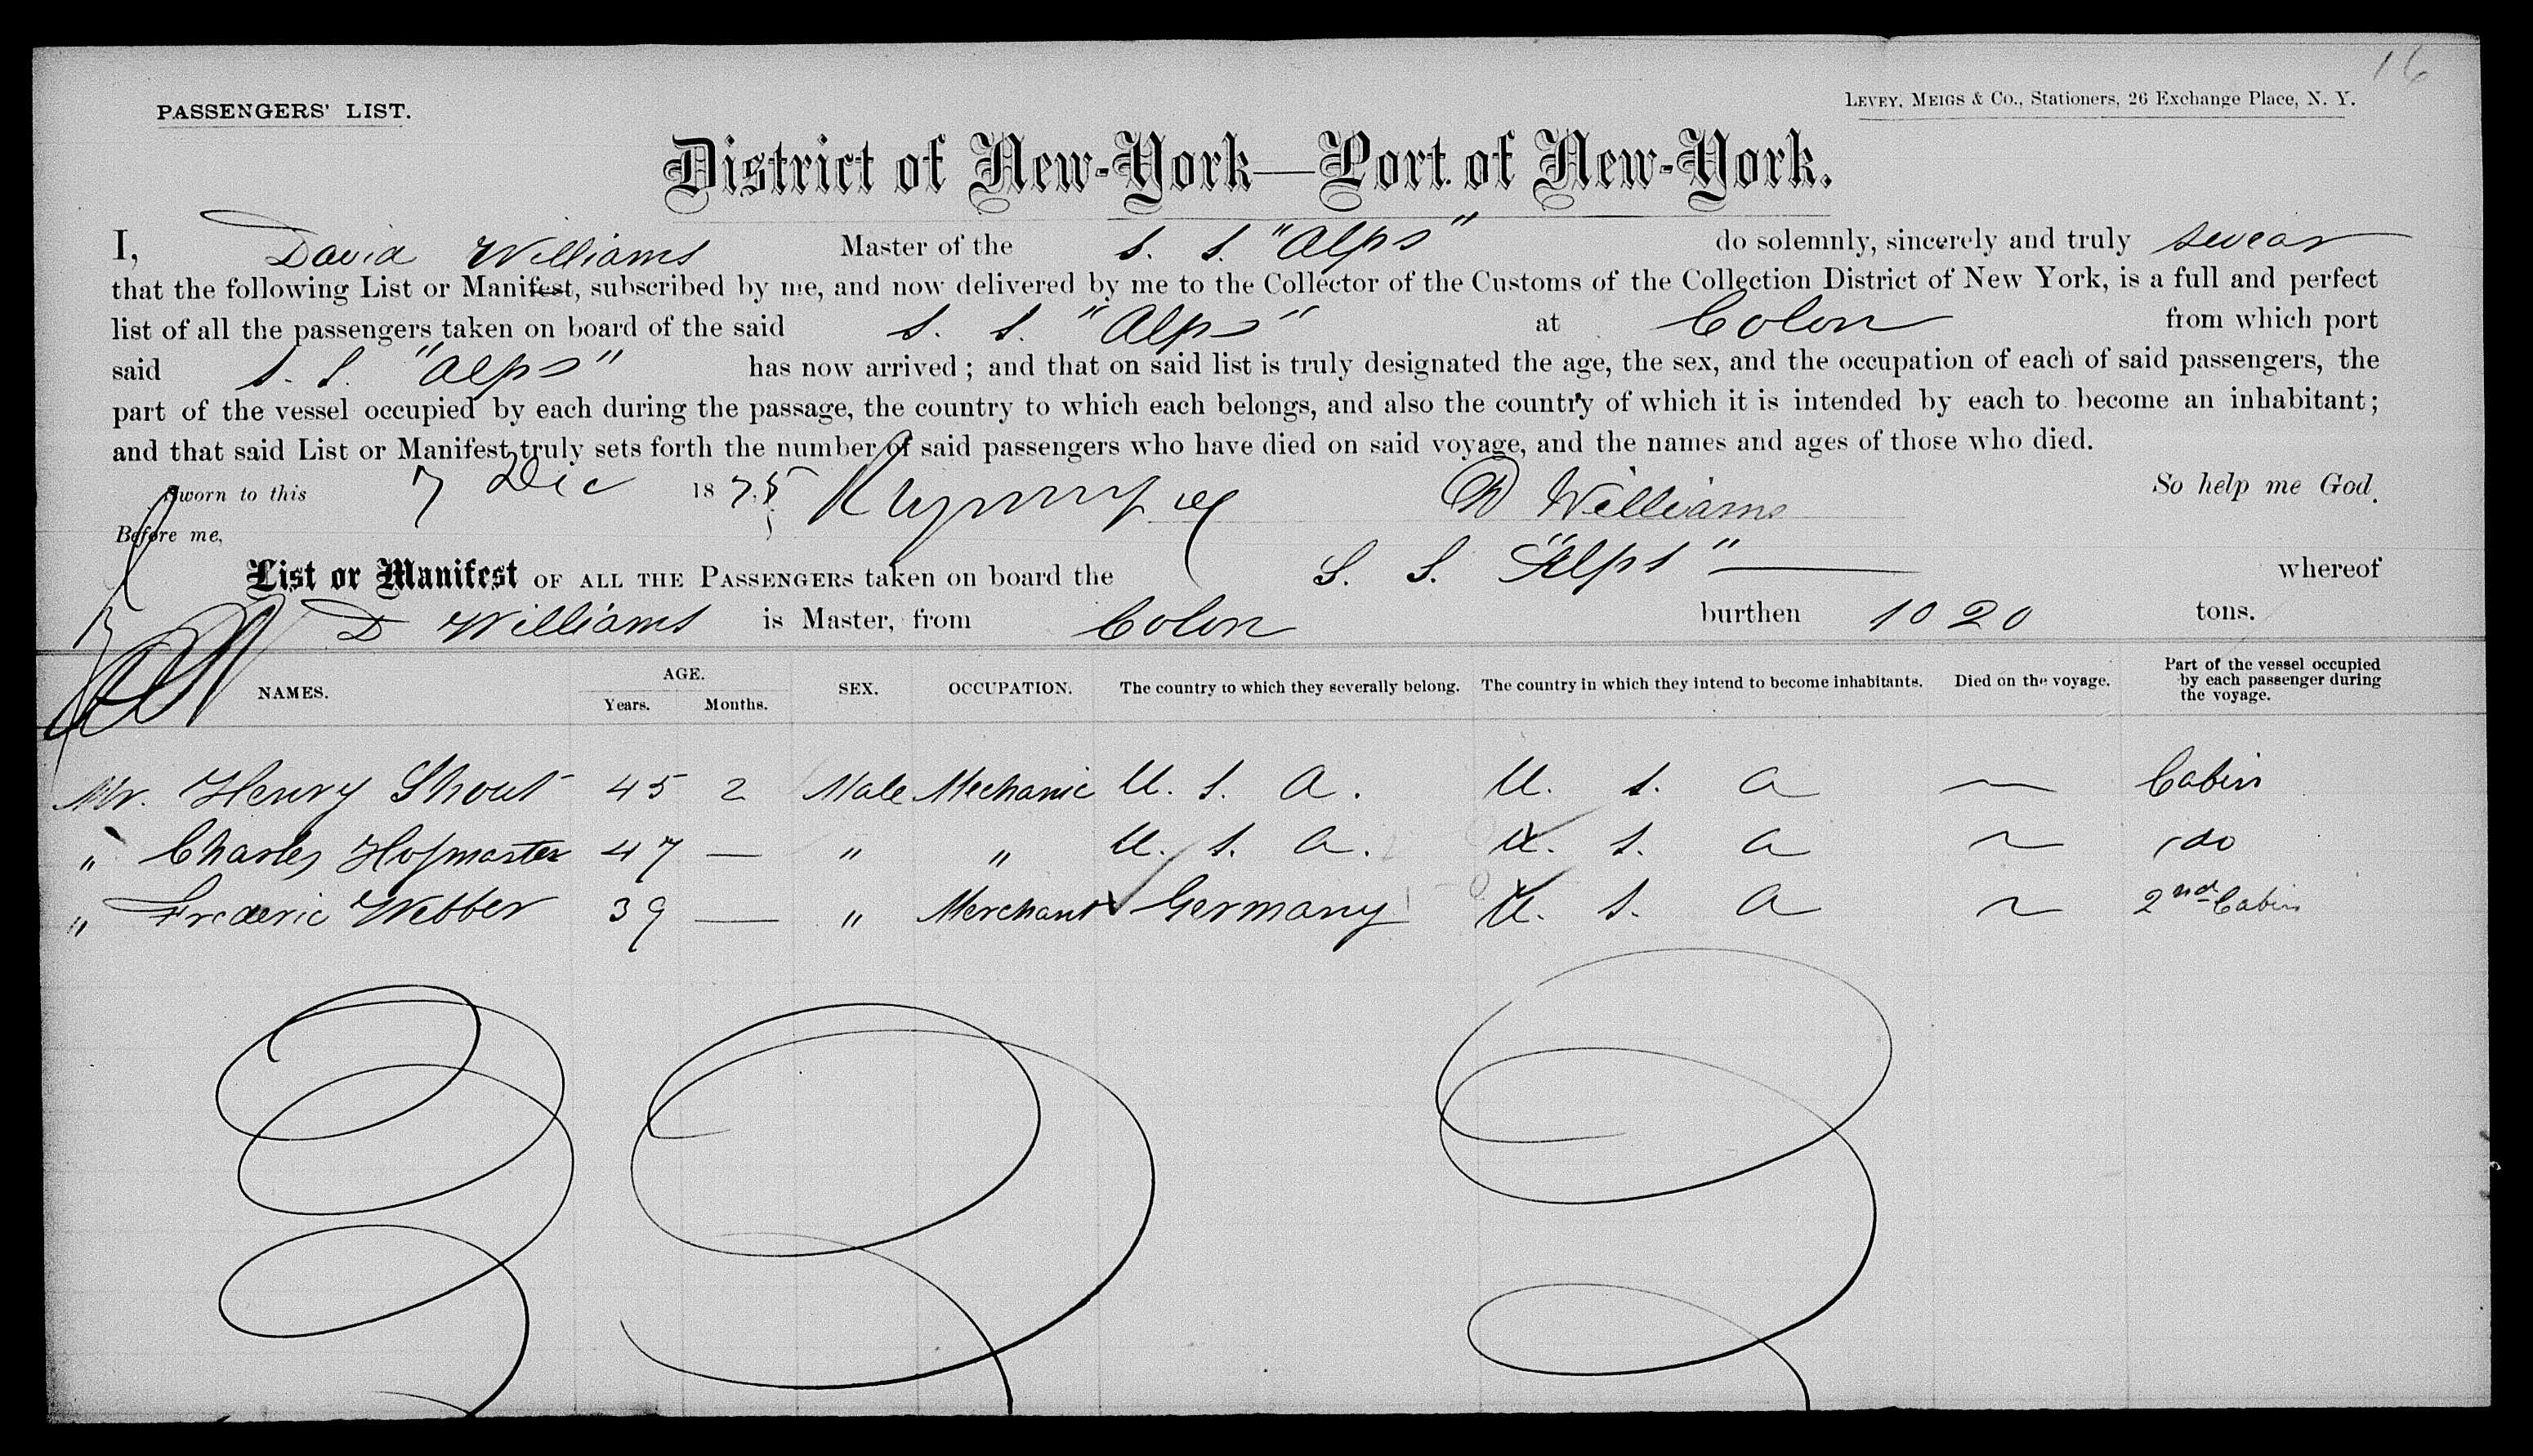 16
PASSENGERS' LIST.
LEVEY, MEIGS & Co., Stationers, 26 Exchange Place, N. Y.
District of New-York—Port of New-York.
I, David Williams Master of the S. S. "Alps" do solemnly, sincerely and truly swear
that the following List or Manifest, subscribed by me, and now delivered by me to the Collector of the Customs of the Collection District of New York, is a full and perfect
list of all the passengers taken on board of the said S. S. "Alps" at Colon from which port
said S. S. "Alps" has now arrived; and that on said list is truly designated the age, the sex, and the occupation of each of said passengers, the
part of the vessel occupied by each during the passage, the country to which each belongs, and also the country of which it is intended by each to become an inhabitant;
and that said List or Manifest truly sets forth the number of said passengers who have died on said voyage, and the names and ages of those who died.
Sworn to this 7 Dec 1875 D Williams So help me God.
Before me,
List or Manifest OF ALL THE PASSENGERS taken on board the S. S. "Alps" whereof
D Williams is Master, from Colon burthen 1020 tons.
NAMES. AGE. Years. Months. SEX. OCCUPATION. The country to which they severally belong. The country in which they intend to become inhabitants. Died on the voyage. Part of the vessel occupied by each passenger during the voyage.
Mr. Henry Shout 45 2 Male Mechanic U. S. A. U. S. A — Cabin
" Charles Hofmaster 47 — " " U. S. A. U. S. A ~ do
" Frederic Webber 39 — " Merchant Germany U. S. A ~ 2nd Cabin